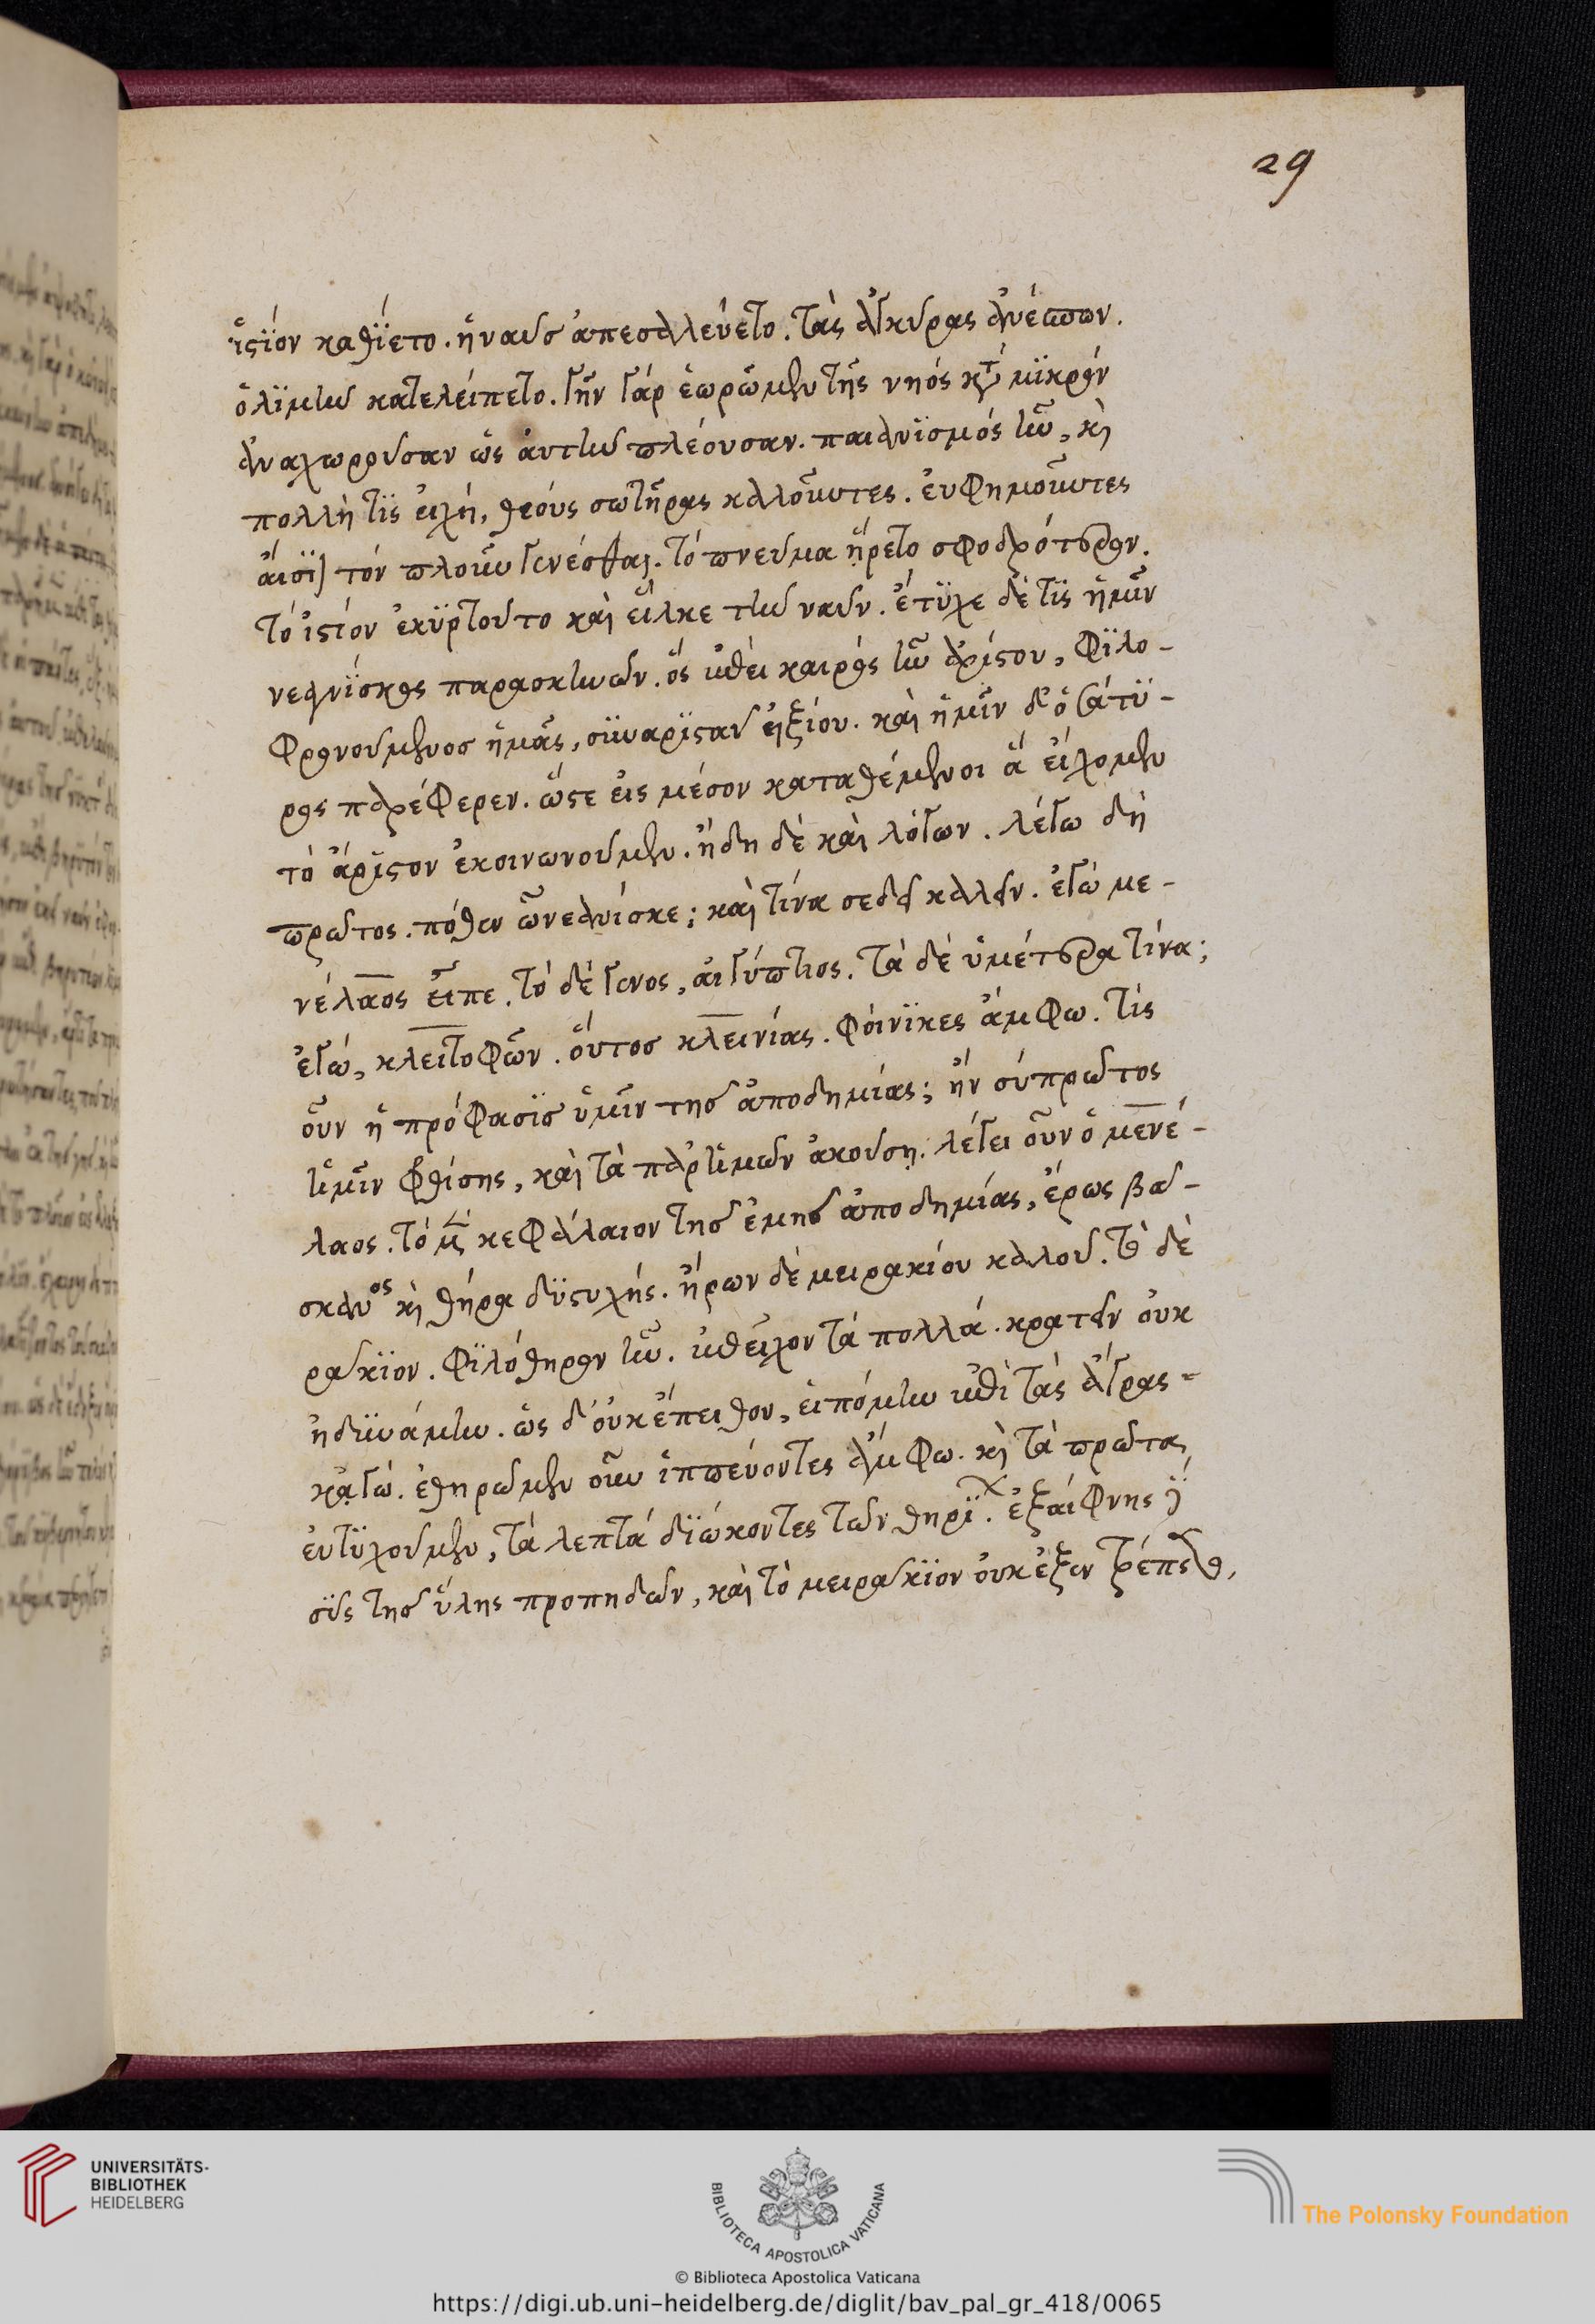 29
ἱστίον καθίετο. ἡ ναῦς ἀπεσαλεύετο. τὰς ἀγκύρας ἀνέσπων.
ὁ λιμὴν κατελείπετο. γῆν γὰρ ἑωρῶμεν τῆς νηός κατὰ μικρὸν
ἀναχωροῦσαν ὡς αὐτὴν πλέουσαν. παιανισμός ἦν, καὶ
πολλή τις εὐχή, θεούς σωτῆρας καλοῦντες. εὐφημοῦντες
αἴσιον τόν πλοῦν γενέσθαι. τό πνεῦμα ᾔρετο σφοδρότερον.
τό ἱστίον ἐκυρτοῦτο καὶ εἷλκε τὴν ναῦν. ἔτυχε δέ τις ἡμῖν
νεανίσκος παρασκηνῶν. ὅς ἐπεὶ καιρός ἦν ἀρίστου, φιλο-
φρονούμενος ἡμᾶς, συναριστᾶν ἠξίου. καὶ ἡμῖν δ' ὁ σάτυ-
ρος παρέφερεν. ὥστε εἰς μέσον καταθέμενοι ἃ εἴχομεν
τὸ ἄριστον ἐκοινωνοῦμεν. ἤδη δὲ καὶ λόγων. λέγω δὴ
πρῶτος. πόθεν ὦ νεανίσκε; καὶ τίνα σε δεῖ καλεῖν. ἐγώ με-
νέλαος εἶπε. τό δέ γένος, αἰγύπτιος. τὰ δέ ὑμέτερα τίνα;
ἐγώ, κλειτοφῶν. οὗτος κλεινίας. φοίνικες ἄμφω. τίς
οὖν ἡ πρόφασις ὑμῖν τῆς ἀποδημίας; ἢν σύ πρῶτος
ἡμῖν φθίσης, καὶ τὰ παρ' ἡμῶν ἀκούσῃ. λέγει οὖν ὁ μενέ-
λαος. τό μὲν κεφάλαιον τῆς ἐμῆς ἀποδημίας, ἔρως βά-
σκανος καὶ θήρα δυστυχής. ἤρων δέ μειρακίου καλοῦ. τὸ δὲ
ράκιον. φιλόθηρον ἦν. ἐπεῖχον τά πολλά. κρατεῖν οὐκ
ἠδυνάμην. ὡς δ' οὐκ ἔπειθον, εἱπόμην ἐπὶ τάς ἄγρας
κἀγώ. ἐθηρῶμεν οὖν ἱππεύοντες ἄμφω. καὶ τὰ πρῶτα
εὐτυχοῦμεν, τά λεπτά διώκοντες τῶν θηρίων. ἐξαίφνης δὲ
σῦς τῆς ὕλης προπηδῶν, καὶ τὸ μειράκιον οὐκ ἐξεντρέπεται,
UNIVERSITÄTS-
BIBLIOTHEK
HEIDELBERG
BIBLIOTECA APOSTOLICA VATICANA
The Polonsky Foundation
© Biblioteca Apostolica Vaticana
https://digi.ub.uni-heidelberg.de/diglit/bav_pal_gr_418/0065